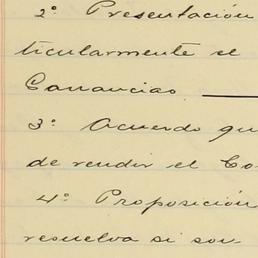 2º Presentación
ticularmente el
Ganancias
3º Acuerdo qu
de rendir el Co
4º Proposición
resuelva si son